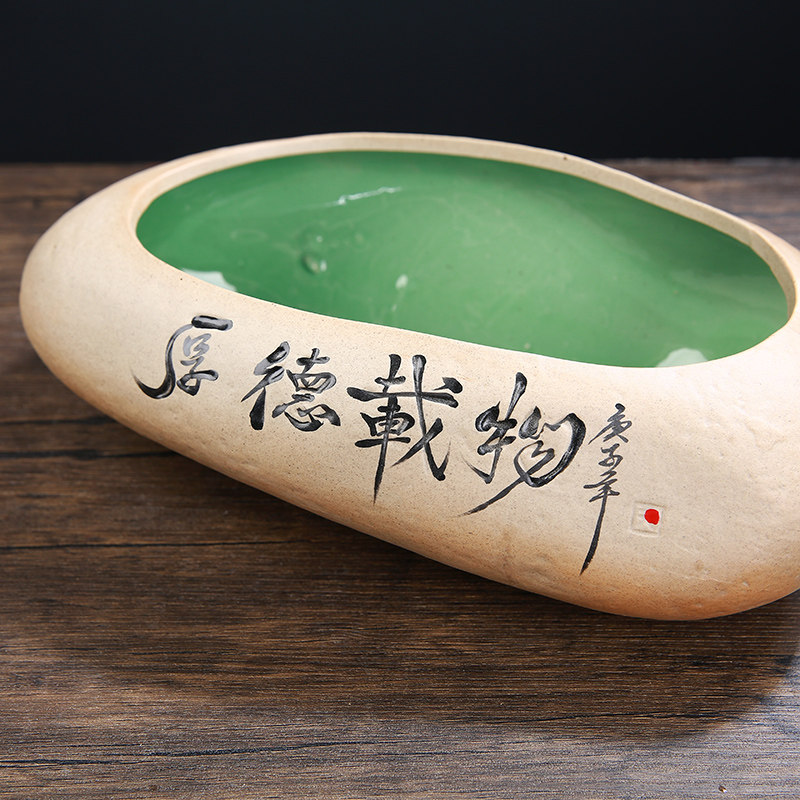 厚德載物
庚子年